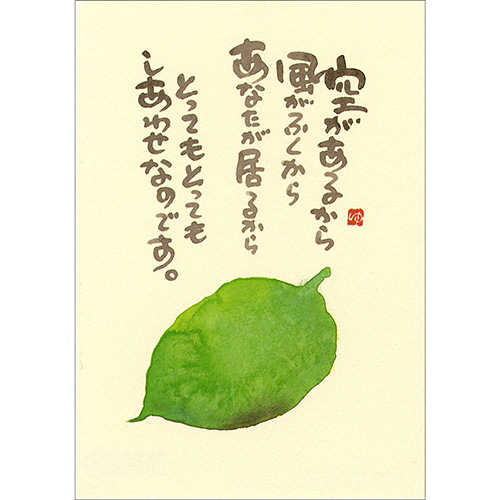 空があるから
風がふくから
あなたが居るから
とってもとっても
しあわせなのです。
ゆ